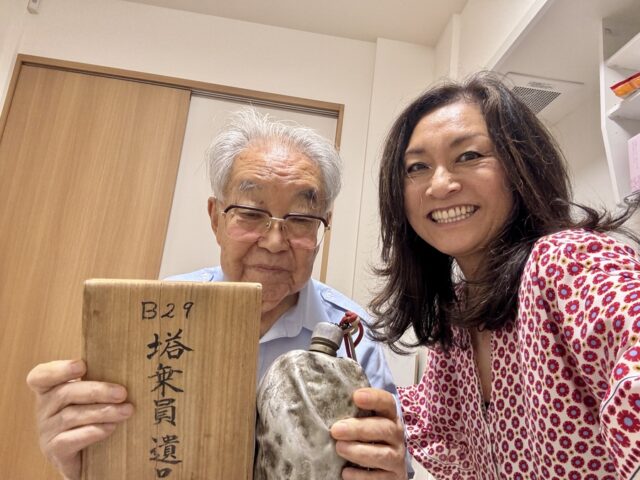 B29
塔乗員遺